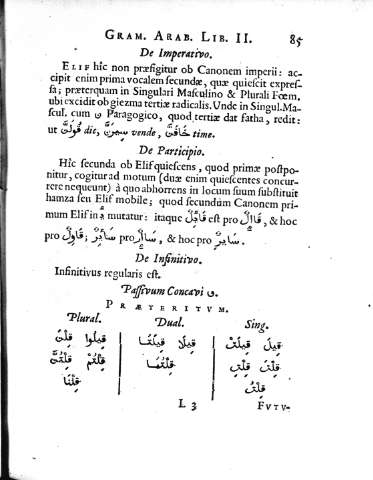 GRAM. ARAB. LIB. II. 85
De Imperativo.
ELIF hîc non præfigitur ob Canonem imperii: ac-
cipit enim prima vocalem secundæ, quæ quiescit expres-
sa; præterquam in Singulari Masculino & Plurali Fœm.
ubi excidit ob giezma tertiæ radicalis. Unde in Singul. Ma-
scul. cum ن Paragogico, quod tertiæ dat fatha, redit:
ut قُولَنَّ dic, سِيرَنَّ vende, خَافَنَّ time.
De Participio.
Hîc secunda ob Elif quiescens, quod primæ postpo-
nitur, cogitur ad motum (duæ enim quiescentes concur-
rere nequeunt) à quo abhorrens in locum suum substituit
hamza seu Elif mobile; quod secundùm Canonem pri-
mum Elif in mutatur: itaque est pro & hoc
pro pro & hoc pro
De Infinitivo.
Infinitivus regularis est.
Passivum Concavi و.
PRÆTERITUM.
Plural. Dual. Sing.
قِيلُوا قِلْنَ قِيلَا قِيلَتَا قِيلَ قِيلَتْ
قِلْتُمْ قِلْتُنَّ قِلْتُمَا قِلْتَ قِلْتِ
قِلْنَا قِلْتُ
L 3 FUTU-